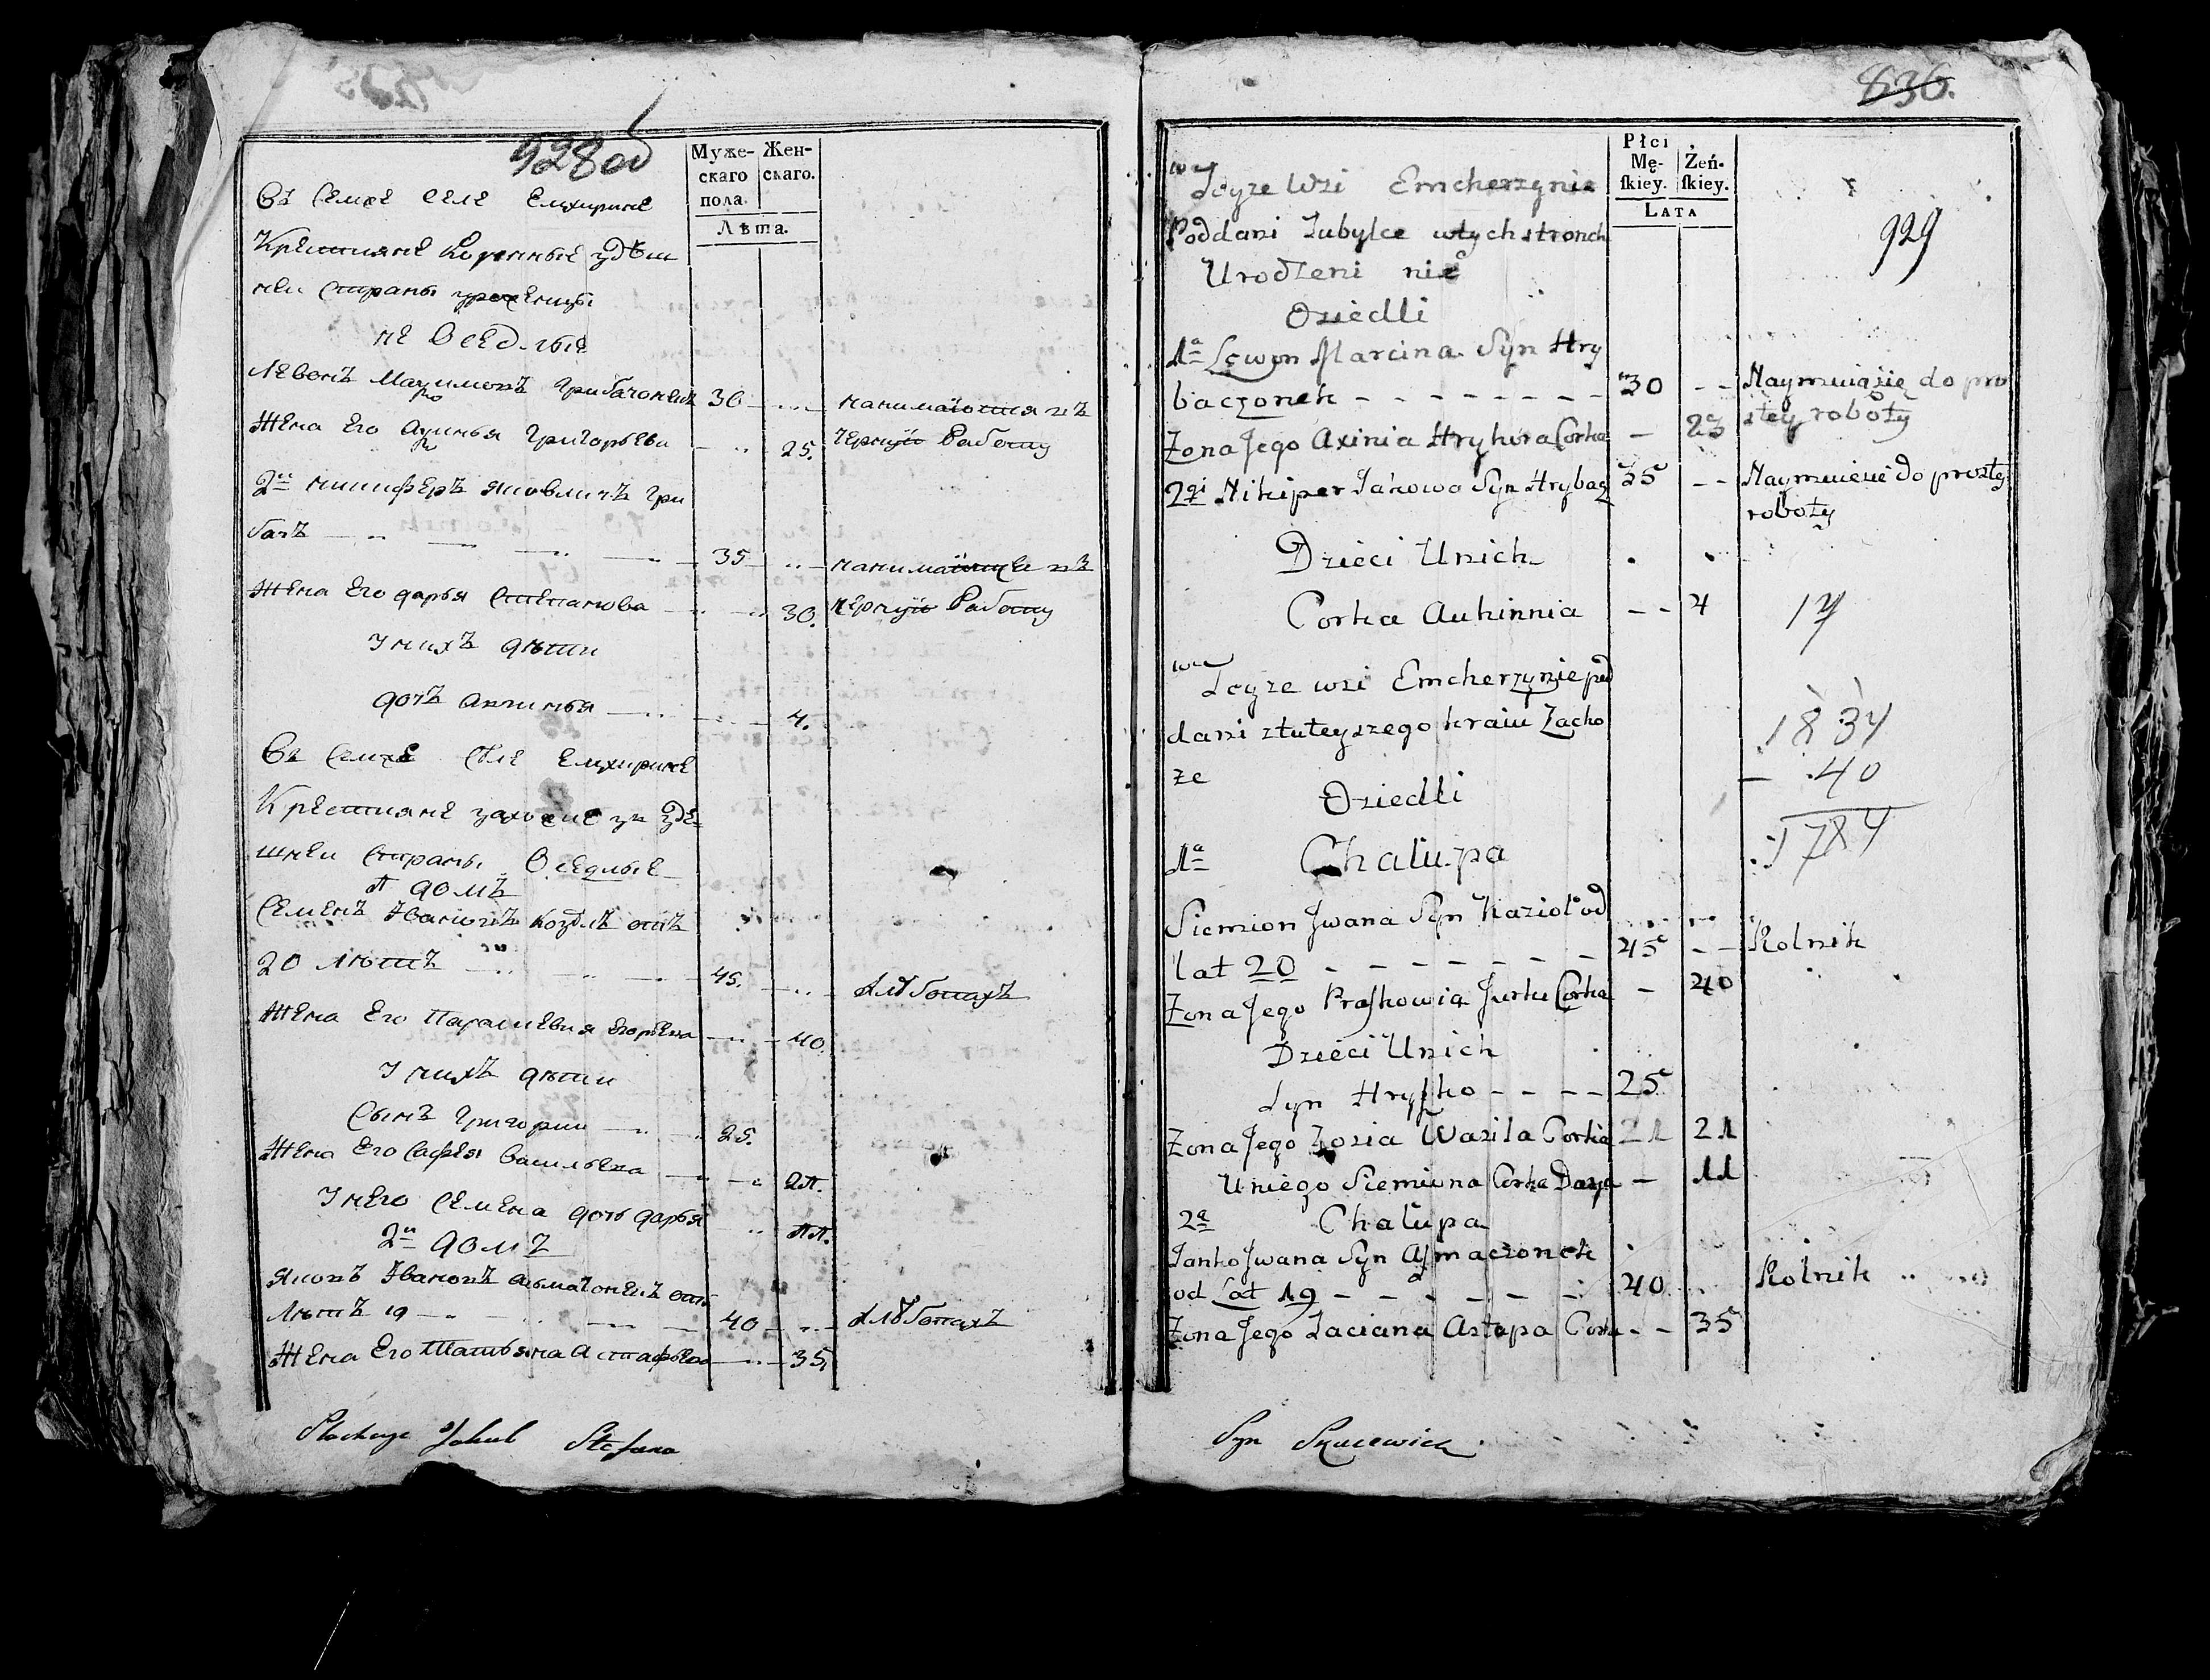 928 об
Муже-
скаго
пола.
Жен-
скаго.
Лѣта.
Въ Семже Селе Емхирине
Крестияне Коренные здѣш
неи Страны уроженцы
не Оседлые
Левонъ Мартиновъ Грибачонекъ 30 нанимаютия въ
Жена Его Аѯинья Григорьева 25. Черную Работу
2й Никиферъ Яковличъ Гри
бачъ 35 нанимающие въ
Жена Его дарья Степанова 30. черную Работу
У нихъ дѣти
дочь Авгинья 4.
Въ Семже Селе Емхирине
Крестияне захожие зъ Здѣ
шнеи Страны Оседлые
1 домъ
Семенъ Ивановъ Козелъ отъ
20 Лѣтъ 45. хлѣбопахъ
Жена Его Парасковия Егорьева 40.
У нихъ дѣти
Сынъ Григории 25.
Жена Его Софья Васильева 21.
У него Семена дочь дарья 11.
2й домъ
Яковъ Ивановъ Асьмачонекъ отъ
Лѣтъ 19 40 хлѣбопахъ
Жена Его Татьяна Астафьева 35
Jakub Stefana
836.
Płci
Mę-
ſkiey.
Żeń-
ſkiey.
LATA
929
w Teyze Wsi Emcherzynie
Poddani Zubylce wtych stronch
Urodzeni nie
Osiedli
1a Lewon Marcina Syn Hry
baczonek 30 Naymuiąsię do pro
Zona Jego Axinia Hryhora Corka 23 stey roboty
2gi Nikiper Jakowa Syn Hrybacz 35 Naymuiesie do prostey
roboty
Dzieci Unich
Corka Auhinnia 4 17
w Teyze wsi Emcherzynie pod
dani ztuteyszego kraiu Zacho
ze
Osiedli
1834
- 40
1784
1a Chałupa
Siemion Jwana Syn Kazioł od
lat 20 45 Rolnik
Zona Jego Praſkowia Jurku Corka 40
Dzieci Unich
Syn Hryſko 25
Zona Jego Zosia Wasila Corka 21 21
Uniego Siemiona Corka Darya 11
2a Chałupa
Janko Jwana Syn Aſmaczonek
od Lat 19 40 Rolnik
Zona Jego Taciana Astapa Corka 35
Syn